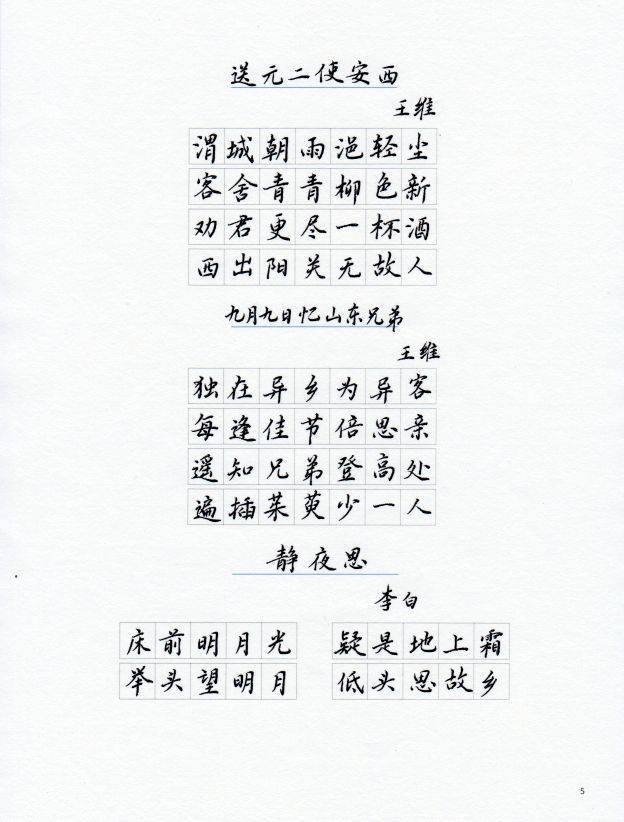 送元二使安西
王维
渭城朝雨浥轻尘
客舍青青柳色新
劝君更尽一杯酒
西出阳关无故人
九月九日忆山东兄弟
王维
独在异乡为异客
每逢佳节倍思亲
遥知兄弟登高处
遍插茱萸少一人
静夜思
李白
床前明月光 疑是地上霜
举头望明月 低头思故乡
5